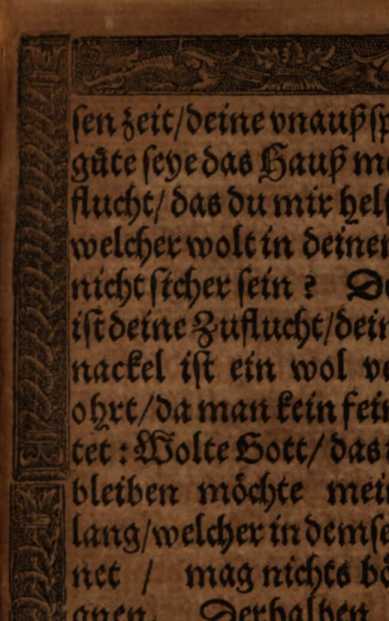 sen zeit/deine vnaußsp
gůte seye das Hauß m
flucht/ das du mir hel
welcher wolt in deine
nicht sicher sein? D
ist deine Zuflucht/dein
nackel ist ein wol v
ohrt/da man kein fei
tet: Wolte Gott/ das
bleiben möchte mei
lang/welcher in demse
net / mag nichts bö
gnen. Derhalben